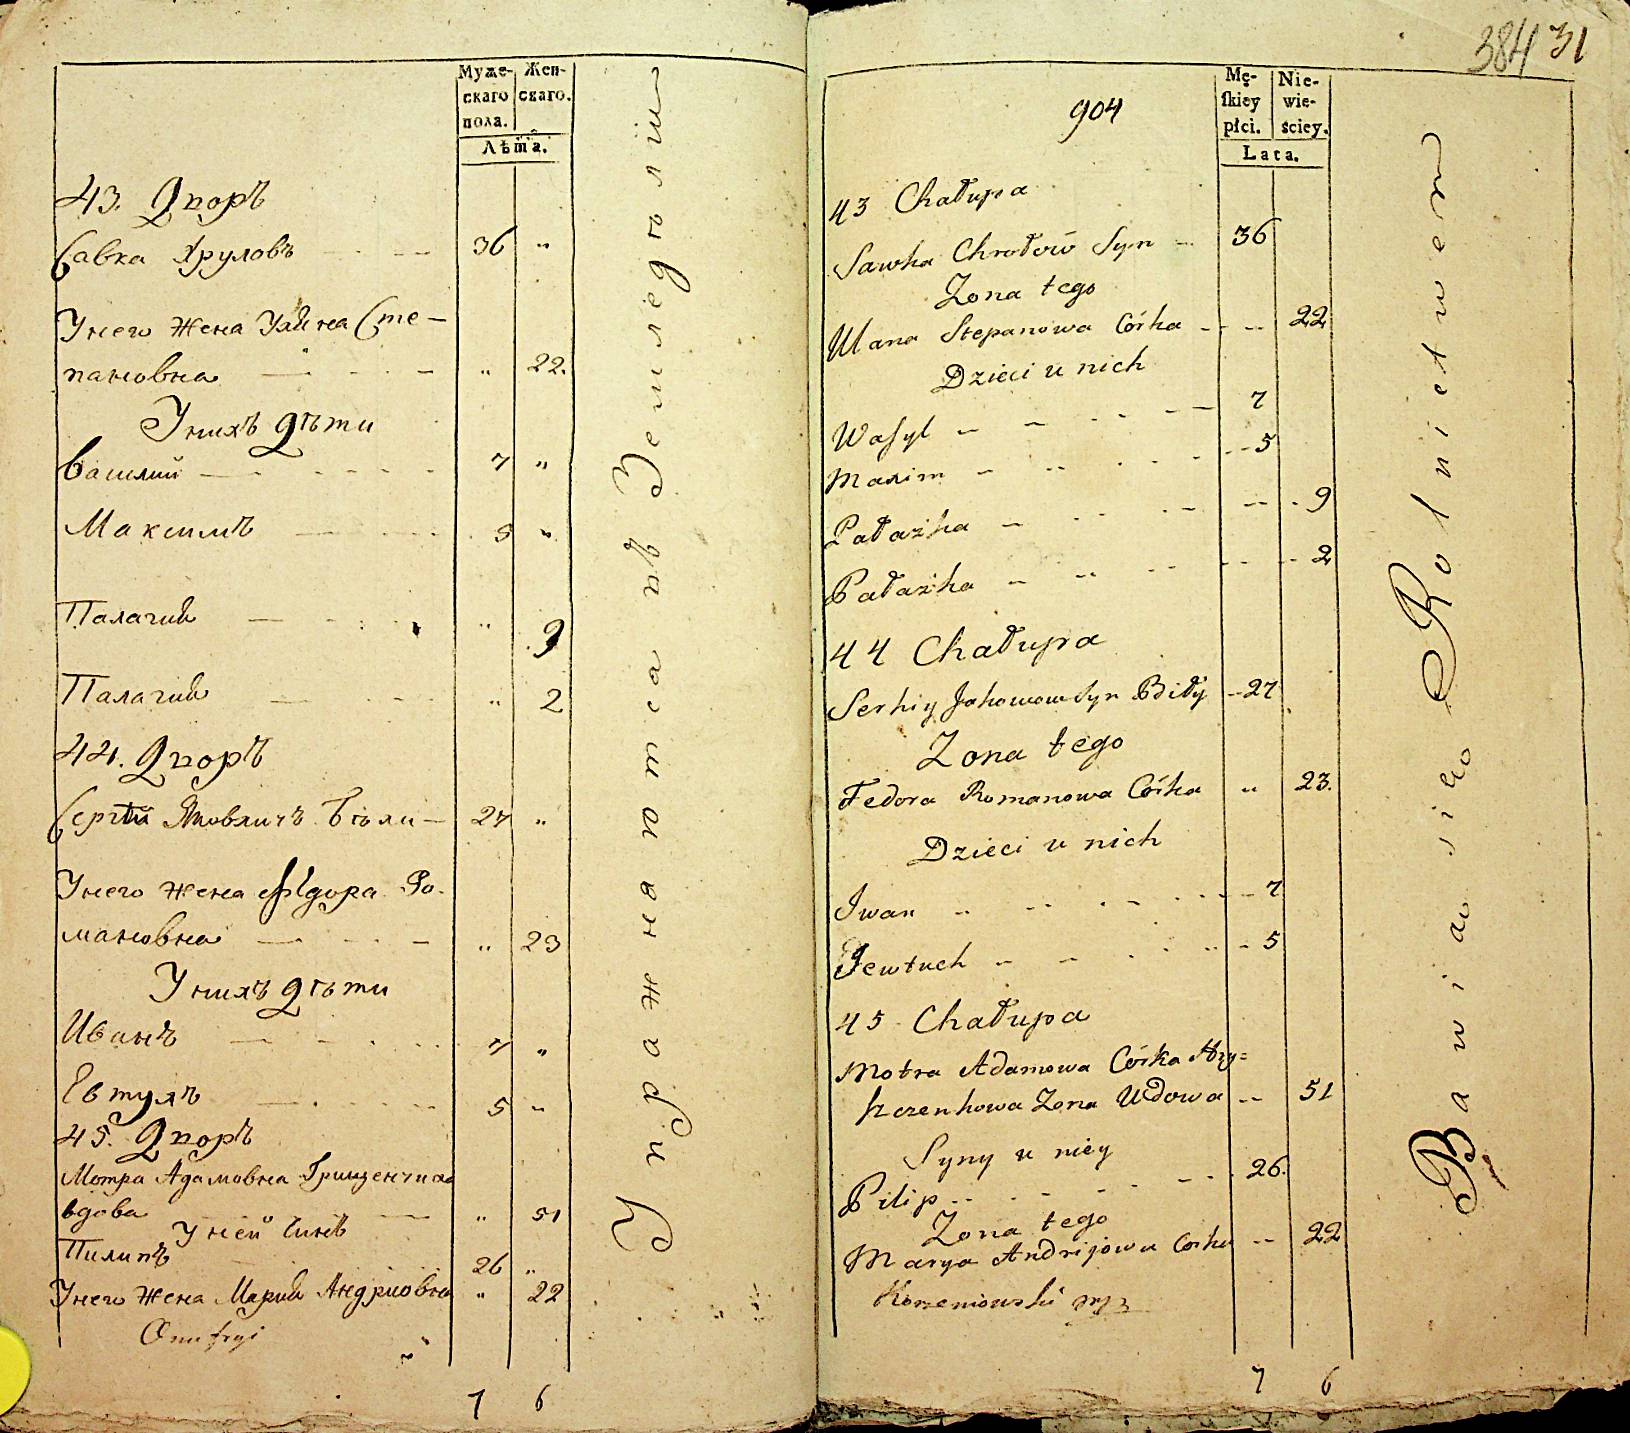 Муже-
скаго
пола.
Жен-
скаго.
Лѣта.
43. Дворъ
Савка Хруловъ 36 "
Унего жена Уляна Сте-
пановна " 22.
Унихъ дѣти
Василий 7 "
Максимъ 5 "
Палагия " 9
Палагия " 2
44. Дворъ
Сергѣй Яковличъ Бѣли- 27 "
Унего жена Ѳедора Ро-
мановна " 23
Унихъ дѣти
Иванъ 7 "
Евтухъ 5 "
45. Дворъ
Мотра Адамовна Грищенчиха
вдова " 51
Уней синъ
Пилипъ 26 "
Унего жена Мария Андриовна " 22
Onufryi
7 6
Упражняются въ Земледѣліи
384 31
904
Mę-
ſkiey
płci.
Nie-
wie-
ściey.
Lata.
43 Chałupa
Sawka Chrołow Syn 36
Zona tego
Ulana Stepanowa Córka 22
Dzieci u nich
Waſyl 7
Maxim 5
Pałażka 9
Pałażka 2
44 Chałupa
Serhiy Jakowow Syn Biły 27
Zona tego
Fedora Romanowa Córka " 23.
Dzieci u nich
Iwan 7
Jewtuch 5
45 Chałupa
Motra Adamowa Córka Hry=
szczenkowa Zona Udowa 51
Syny u niey
Pilip 26.
Zona tego
Marya Andrijowa Corka 22
Korzeniowski
7 6
Bawią się Rolnictwem